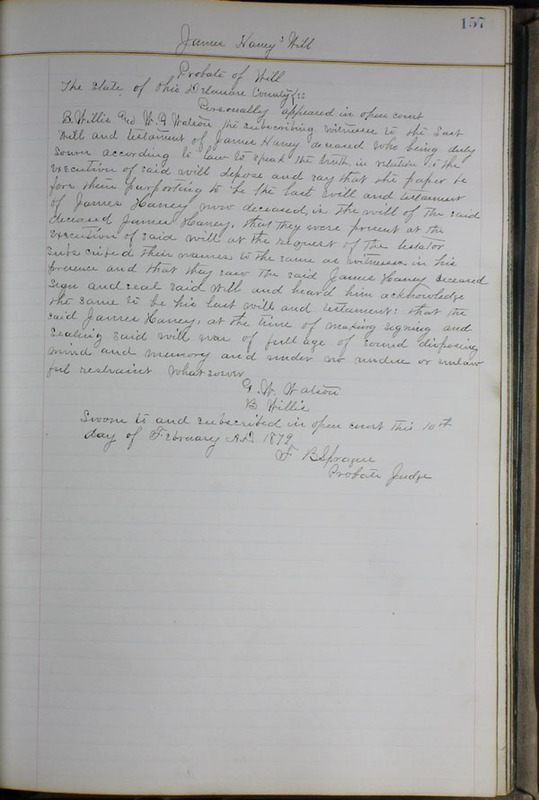 157
James Haney's Will
Probate of Will
The State of Ohio Delaware County ss
Personally appeared in open court
B. Willis Geo W. Watson the subscribing witnesses to the Last
Will and testament of James Haney deceased who being duly
sworn according to law to speak the truth in relation to the
execution of said will depose and say that the paper be
fore them purporting to be the last will and testament
of James Haney now deceased, is the will of the said
deceased James Haney, that they were present at the
execution of said will at the request of the testator
subscribed their names to the same as witnesses in his
presence and that they saw the said James Haney deceased
sign and seal said will and heard him acknowledge
the same to be his last will and testament: that the
said James Haney, at the time of making signing and
sealing said will was of full age of sound disposing
mind and memory and under no undue or unlaw
ful restraint whatsoever
G. W. Watson
B Willis
Sworn to and subscribed in open court this 10th
day of February A.D. 1879
F B Sprague
Probate Judge